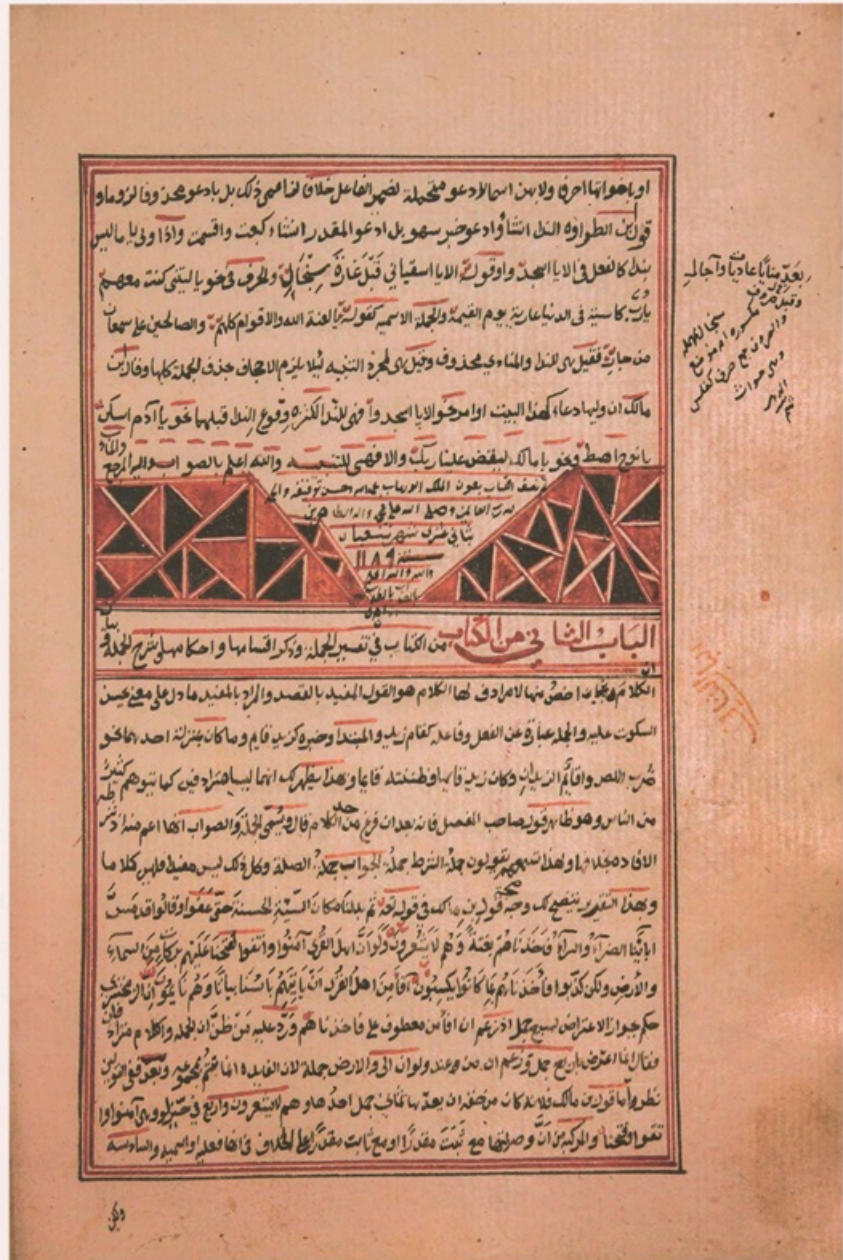 او باخواتها احرفا ولا بهن اسما لادعو متحملة لضمير الفاعل خلافا لزاعمى ذلك بل بادعو محذوفا لزوما و
قول بن الطراوة الندا انشا وادعو خبر سهو بل ادعو المقدر انشاء كبعت واقسمت واذا ولى يا ما ليس
بندا كالفعل فى الا يا اسجدوا وقوله الا يا اسقيانى قبل غارة سنجال والحرف فى نحو يا ليتنى كنت معهم
يا رب كاسية فى الدنيا عارية يوم القيمة والجملة الاسمية كقوله يا لعنة الله والاقوام كلهم والصالحين على سمعان
من جار فقيل هى للندا والمنادى محذوف وقيل هى لمجرد التنبيه ليلا يلزم الاجحاف بحذف الجملة كلها وقال بن
مالك ان وليها دعاء كهذا البيت او امر نحو الا يا اسجدوا فهى للندا لكثرة وقوع الندا قبلهما نحو يا آدم اسكن
يا نوح اهبط ونحو يا مالك ليقض علينا ربك والا فهى للتنبيه والله اعلم بالصواب واليه المرجع والماب
نصف الكتاب بعون الملك الوهاب بحمد الله وحسن توفيقه والحمد
لله رب العالمين وصلى الله على محمد واله الطاهرين
ثانى عشرى شهر شعبان
سنة ١١٨٩
الباب الثانى من الكتاب من الكتاب فى تفسير الجملة وذكر اقسامها واحكامها شرح الجملة وبيان
ان
الكلام اخص منها لا مرادف لها الكلام هو القول المفيد بالقصد والمراد بالمفيد ما دل على معنى يحسن
السكوت عليه والجملة عبارة عن الفعل وفاعله كقام زيد والمبتدا وخبره كزيد قايم وما كان بمنزلة احدهما نحو
ضرب اللص واقائم الزيدان وكان زيد قايما وظننته قايما وبهذا يظهر لك انهما ليسا مترادفين كما يتوهم كثير
من الناس وهو ظاهر قول صاحب المفصل فانه بعد ان فرغ من حد الكلام قال ويسمى الجملة والصواب انها اعم منه اذ شرطه
الافادة بخلافها ولهذا تسمعهم يقولون جملة الشرط جملة الجواب جملة الصلة وكل ذلك ليس مفيدا فليس كلاما
وبهذا التقرير يتضح لك وجه صحة قول بن مالك فى قوله تعه ثم بدلنا مكان السيئة الحسنة حتى عفوا وقالوا قد مس
اباءنا الضراء والسراء فاخذناهم بغتة وهم لا يشعرون ولو ان اهل القرى آمنوا واتقوا لفتحنا عليهم بركات من السماء
والارض ولكن كذبوا فاخذناهم بما كانوا يكسبون افامن اهل القرى ان ياتيهم باسنا بياتا وهم نايمون ان الزمخشرى
حكم بجواز الاعتراض بسبع جمل اذ زعم ان افامن معطوف على فاخذناهم ورد عليه من ظن ان الجملة والكلام مترادفان
فقال انما اعترض باربع جمل وزعم ان من عند ولو ان الى والارض جملة لان الفايده انما تتم بمجموعه وبعد ففى القولين
نظر اما قول بن مالك فلانه كان من حقه ان يعدها ثمانى جمل احدها وهم لا يشعرون واربع فى حيز لو وهى آمنوا و
اتقوا وفتحنا والمركبة من ان وصلتها مع ثبت مقدرا او مع ثابت مقدرا على الخلاف فى انها فعلية او اسمية والسادسة